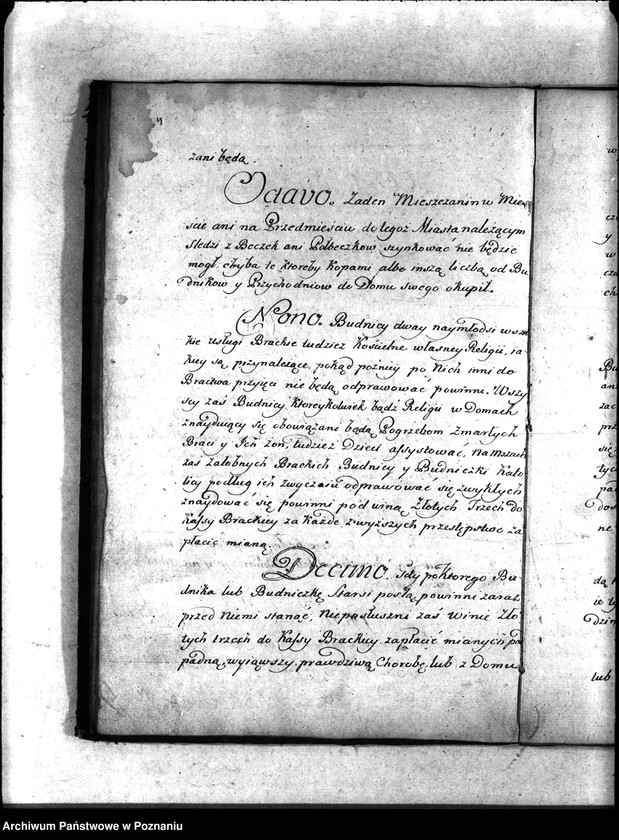 4
zani będą.
Octavo. Zaden Mieszczanin w Mie-
scie ani na Przedmiesciu do tegoz Miasta nalezącym
sledzi z Beczek ani Pułbeczkow szynkowac nie będzie
mogł, chyba te ktoreby kopami albo inszą liczbą od Bu
dnikow y Przychodniow do Domu swego okupił.
Nono. Budnicy dway naymłodsi wszel
kie usługi Brackie tudziez Koscielne własney Religii, ia
kiey są przynalezące, pokąd pozniey po Nich inni do
Bractwa przyięci nie będą odprawowac powinni. Wszy
scy zas Budnicy ktoreykolwiek bądz Religii w Domach
znayduiący się obowiązani będą Pogrzebom Zmarłych
Braci y Ich zon, tudziez Dzieci assystowac, na Mszach
zas załobnych Brackich Budnicy y Budniczki Kato
licy podług ich zwyczaiu odprawowac się zwykłych
znaydowac się powinni pod winą Złotych Trzech do
Kassy Brackiey za kazde zwyzszych przestępstwo za
płacic mianą.
Decimo. Gdy po ktorego Bu-
dnika lub Budniczkę Starsi poslą, powinni zaraz
przed Niemi stanąc, Nieposłuszni zas winie Zło
tych trzech do Kassy Brackiey zapłacic mianych po
padną, wyiąwszy prawdziwą Chorobę, lub z Domu
Archiwum Państwowe w Poznaniu